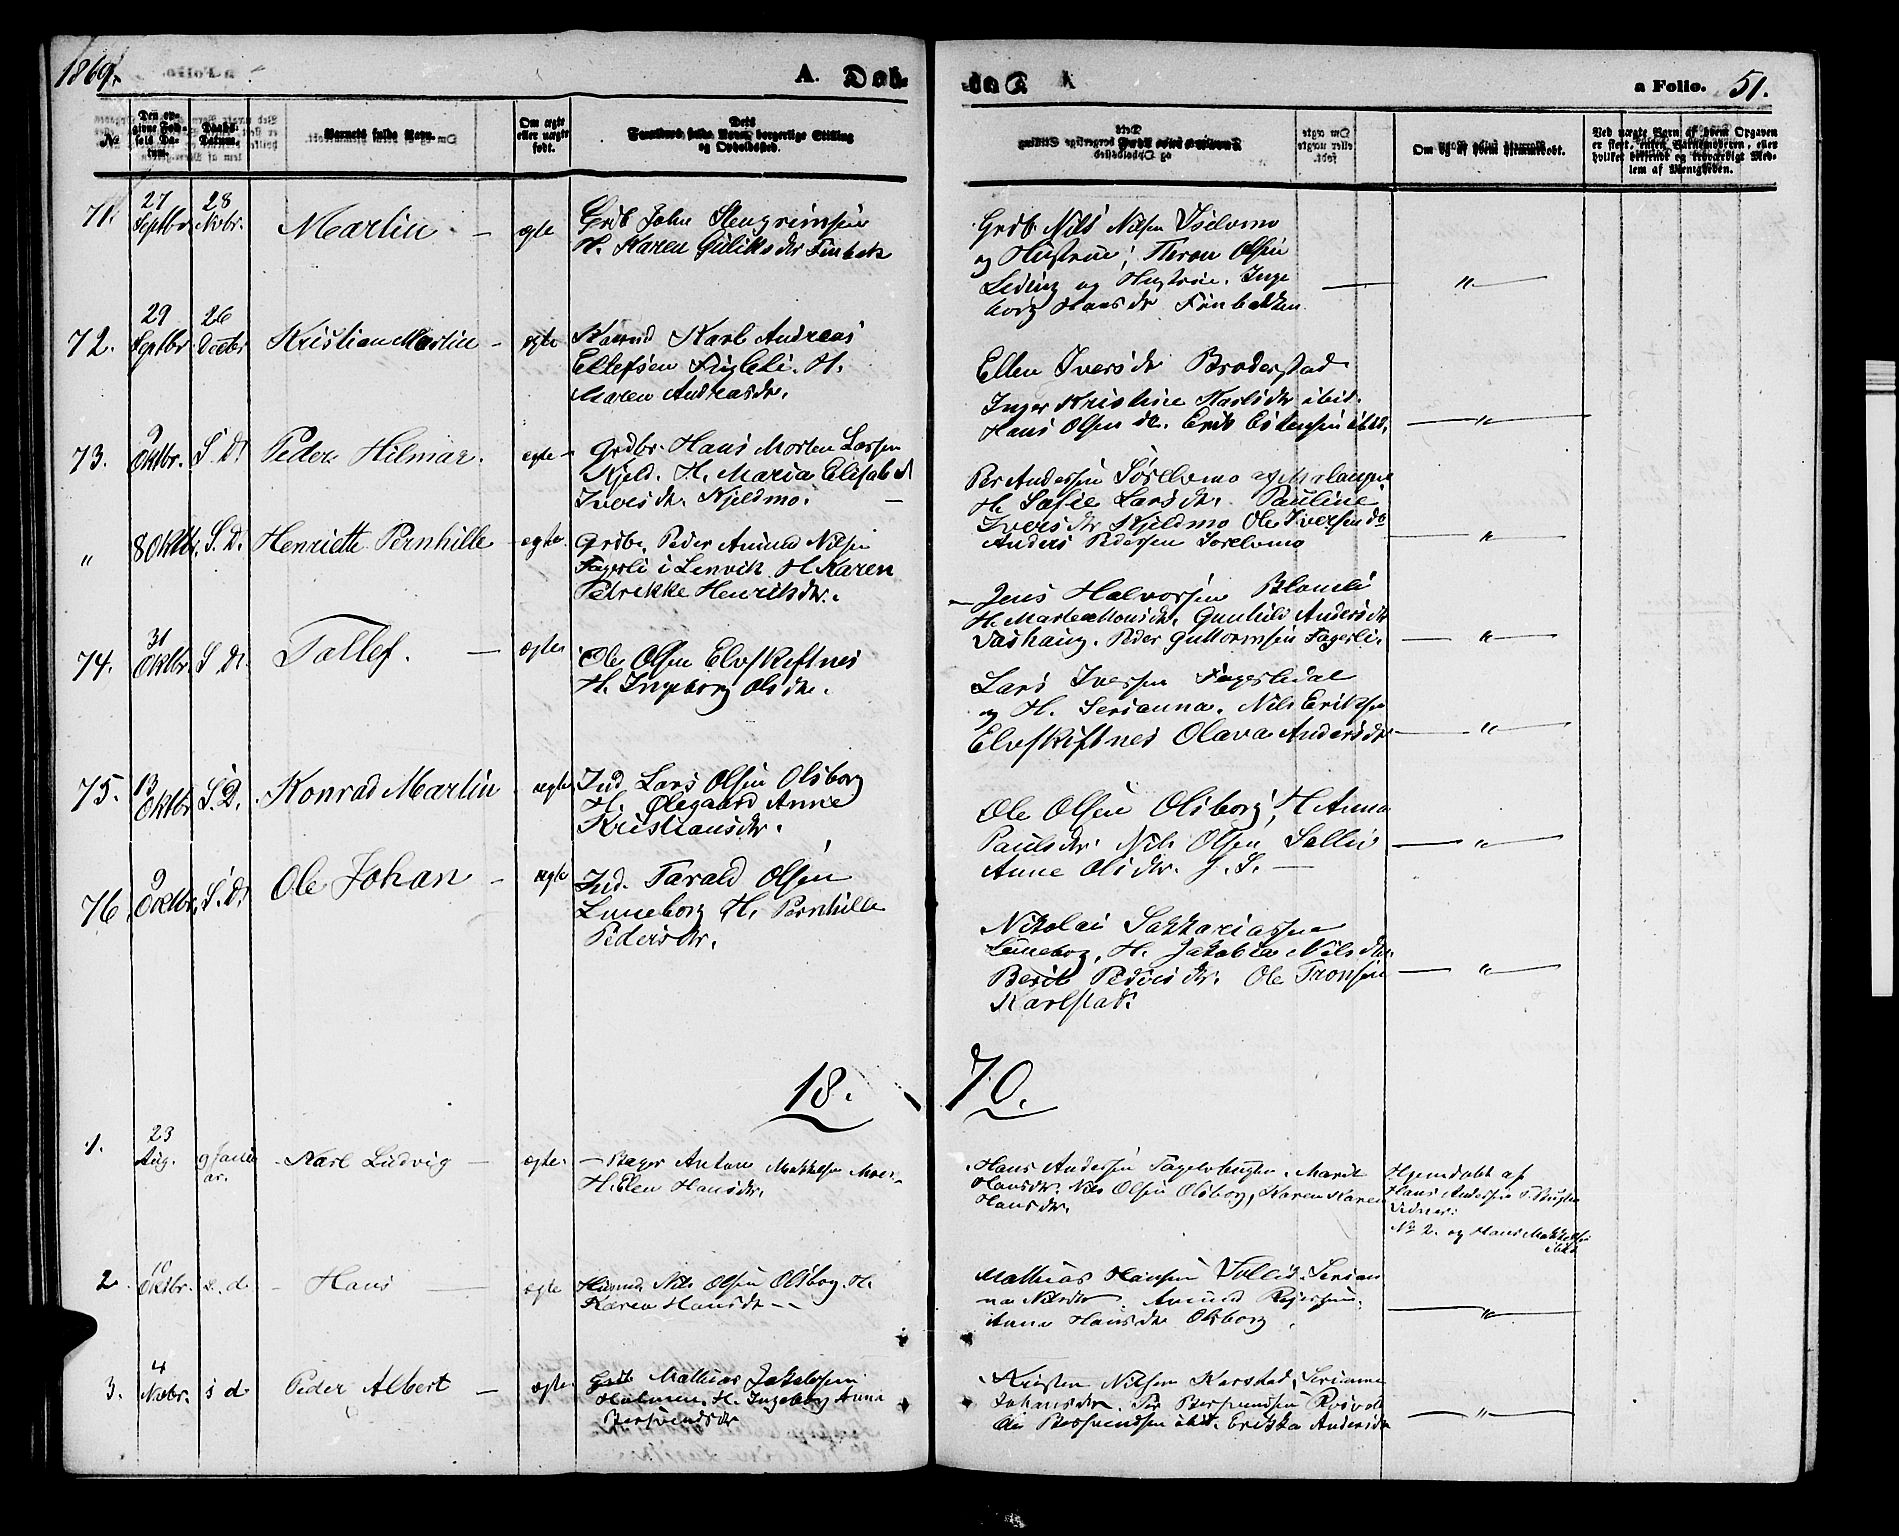 1869.
A. Døb
a Folio. 51.
No
Den opgivne Fødsels Datum.
Daabs-Datum.
Barnets fulde Navn.
Om ægte eller uægte født.
Dets Forældres fulde Navn, borgerlige Stilling og Opholdssted.
Om og af hvem hjemmedøbt.
Ved uægte Børn af hvem Opgaven er skeet, enten Barnemoderen, eller hvilket
71.
27 Septbr.
28 Novbr.
Martin
egte
Grdb John Stengrimsen
H. Karen Guliksdr Finbak
Grdb Nils Nilsen
og Hustrue;
og Hustrue. Inge
borg Hansdr Finbakken
"
72.
29 Septbr
26 Decbr
Kristian Martin
egte
Karl Andreas
Ellefsen Fugleli. H.
Maren Andreasdr.
Ellen Iversdr Braderstad
Inger Kristine Karlsdr ibid.
Hans Olsen do. Erik Estensen ibid.
"
73.
9 Oktbr.
S. D.
Peder Hilmar.
egte
Grdbr. Hans Morten Larsen
Kjeld. H. Maria Elisabet
Iversdr. Kjeldmo.
Per Andersen Sørelvmo af Malangen
H. Safie Larsdr. Pauline
Iversdr Kjeldmo Ole Iversen do
Anders Pedersen Sorelvmo
"
"
8 Oktbr.
S. D.
Henriette Pernhille
egte.
Grdbr. Peder Amund Nilsen
Fagerli i Lenvik H Karen
Petrikke Henriksdr.
Jens Halvorsen Blomli
H. Marten Monsdr. Gunhild Andersdr
Vashaug. Peder Guttormsen Fagerli.
"
74.
31 Oktbr.
S D.
Tollef.
egte
Ole Olsen Elvskiftnes
H. Ingeborg Olsdr.
Lars Iversen Fagerlidal
og H. Serianna. Nils Eriksen
Elvskiftnes Olava Andersdr
"
75.
13 Oktbr
S. D.
Konrad Martin
egte
Ind Lars Olsen Olsborg
H. Olegaard Anne
Kristiansdr.
Ole Olsen Olsborg, H Anna
Paulsdr. Nils Olsen Sollis
Anne Olsdr. J. S.
"
76.
9 Oktbr.
S. D.
Ole Johan
egte
Ind. Tarald Olsen
Luneborg H. Pernhille
Pedersdr.
Nikolai Sakkariassen
Luneborg, H. Jakobia Nilsdr.
Berit Pedersdr. Ole Tronsen
Karlstad.
"
18.
70.
1.
23 Aug.
9 Januar.
Karl Ludvig
egte.
Anton Mikkelsen Moen
H. Elen Hansdr.
Hans Andersen Marit
Hansdr. Nils Olsen Olsborg, Karen Maren
Hansdr.
Hjemdøbt af
Hans Andersen
Vidner:
No 2. og Hans Mikkelsen
ibid.
2.
Oktbr.
s. d.
Hans
egte
Husmd Nils Olsen Olsborg H.
Karen Hansdr
Mathias Hansen Serian
na Nilsdr. Amund
Anna Hansdr Olsborg.
"
3.
4 Novbr.
s d
Peder Albert
egte
Grdb Mathias Jakobsen
Holmen. H. Ingeborg Anna
Bersvendsdr
Kristen Nilsen Karstad, Serianna
Johansdr. Per Bersvendsen
Bersvendsen ibid. Erikka Andersdr
"